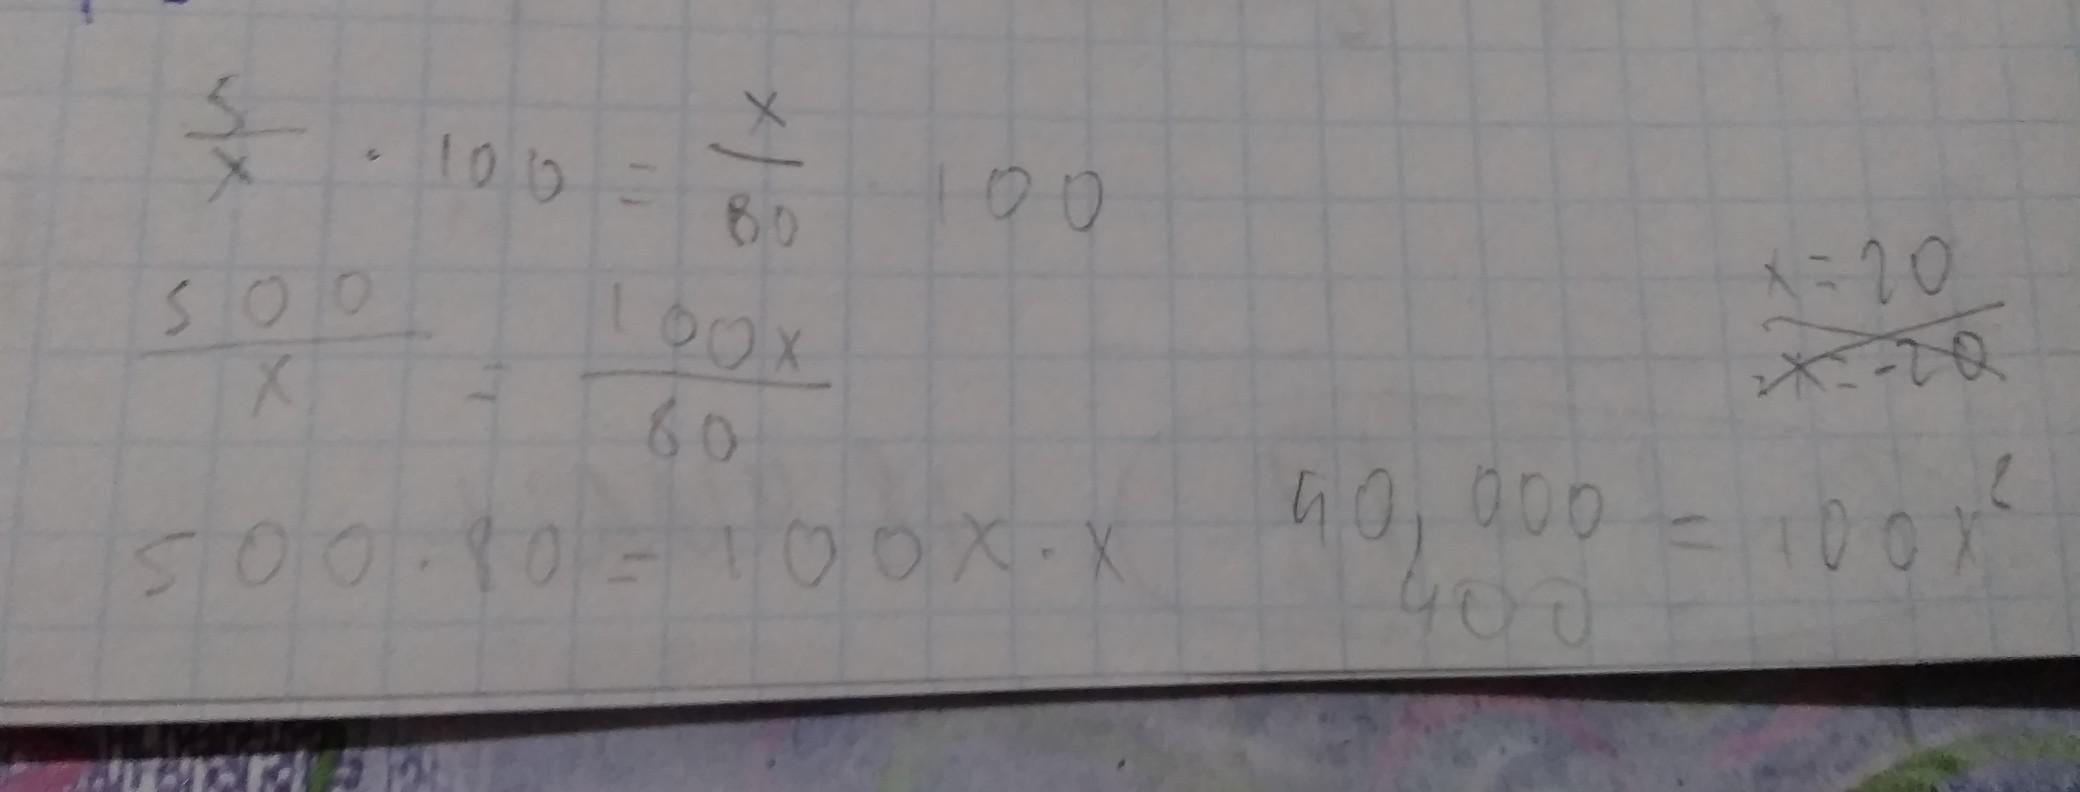 5/x · 100 = x/80 100
500/x = 100x/80
500 · 80 = 100x · x
40,000 = 100x²
400
x = 20
x = -20